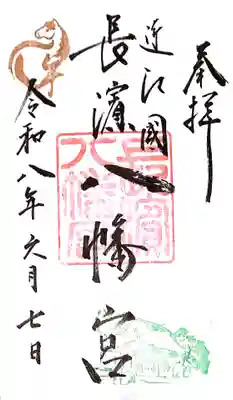 奉拝
近江國
長濱八幡宮
令和八年六月七日
長濱八幡宮